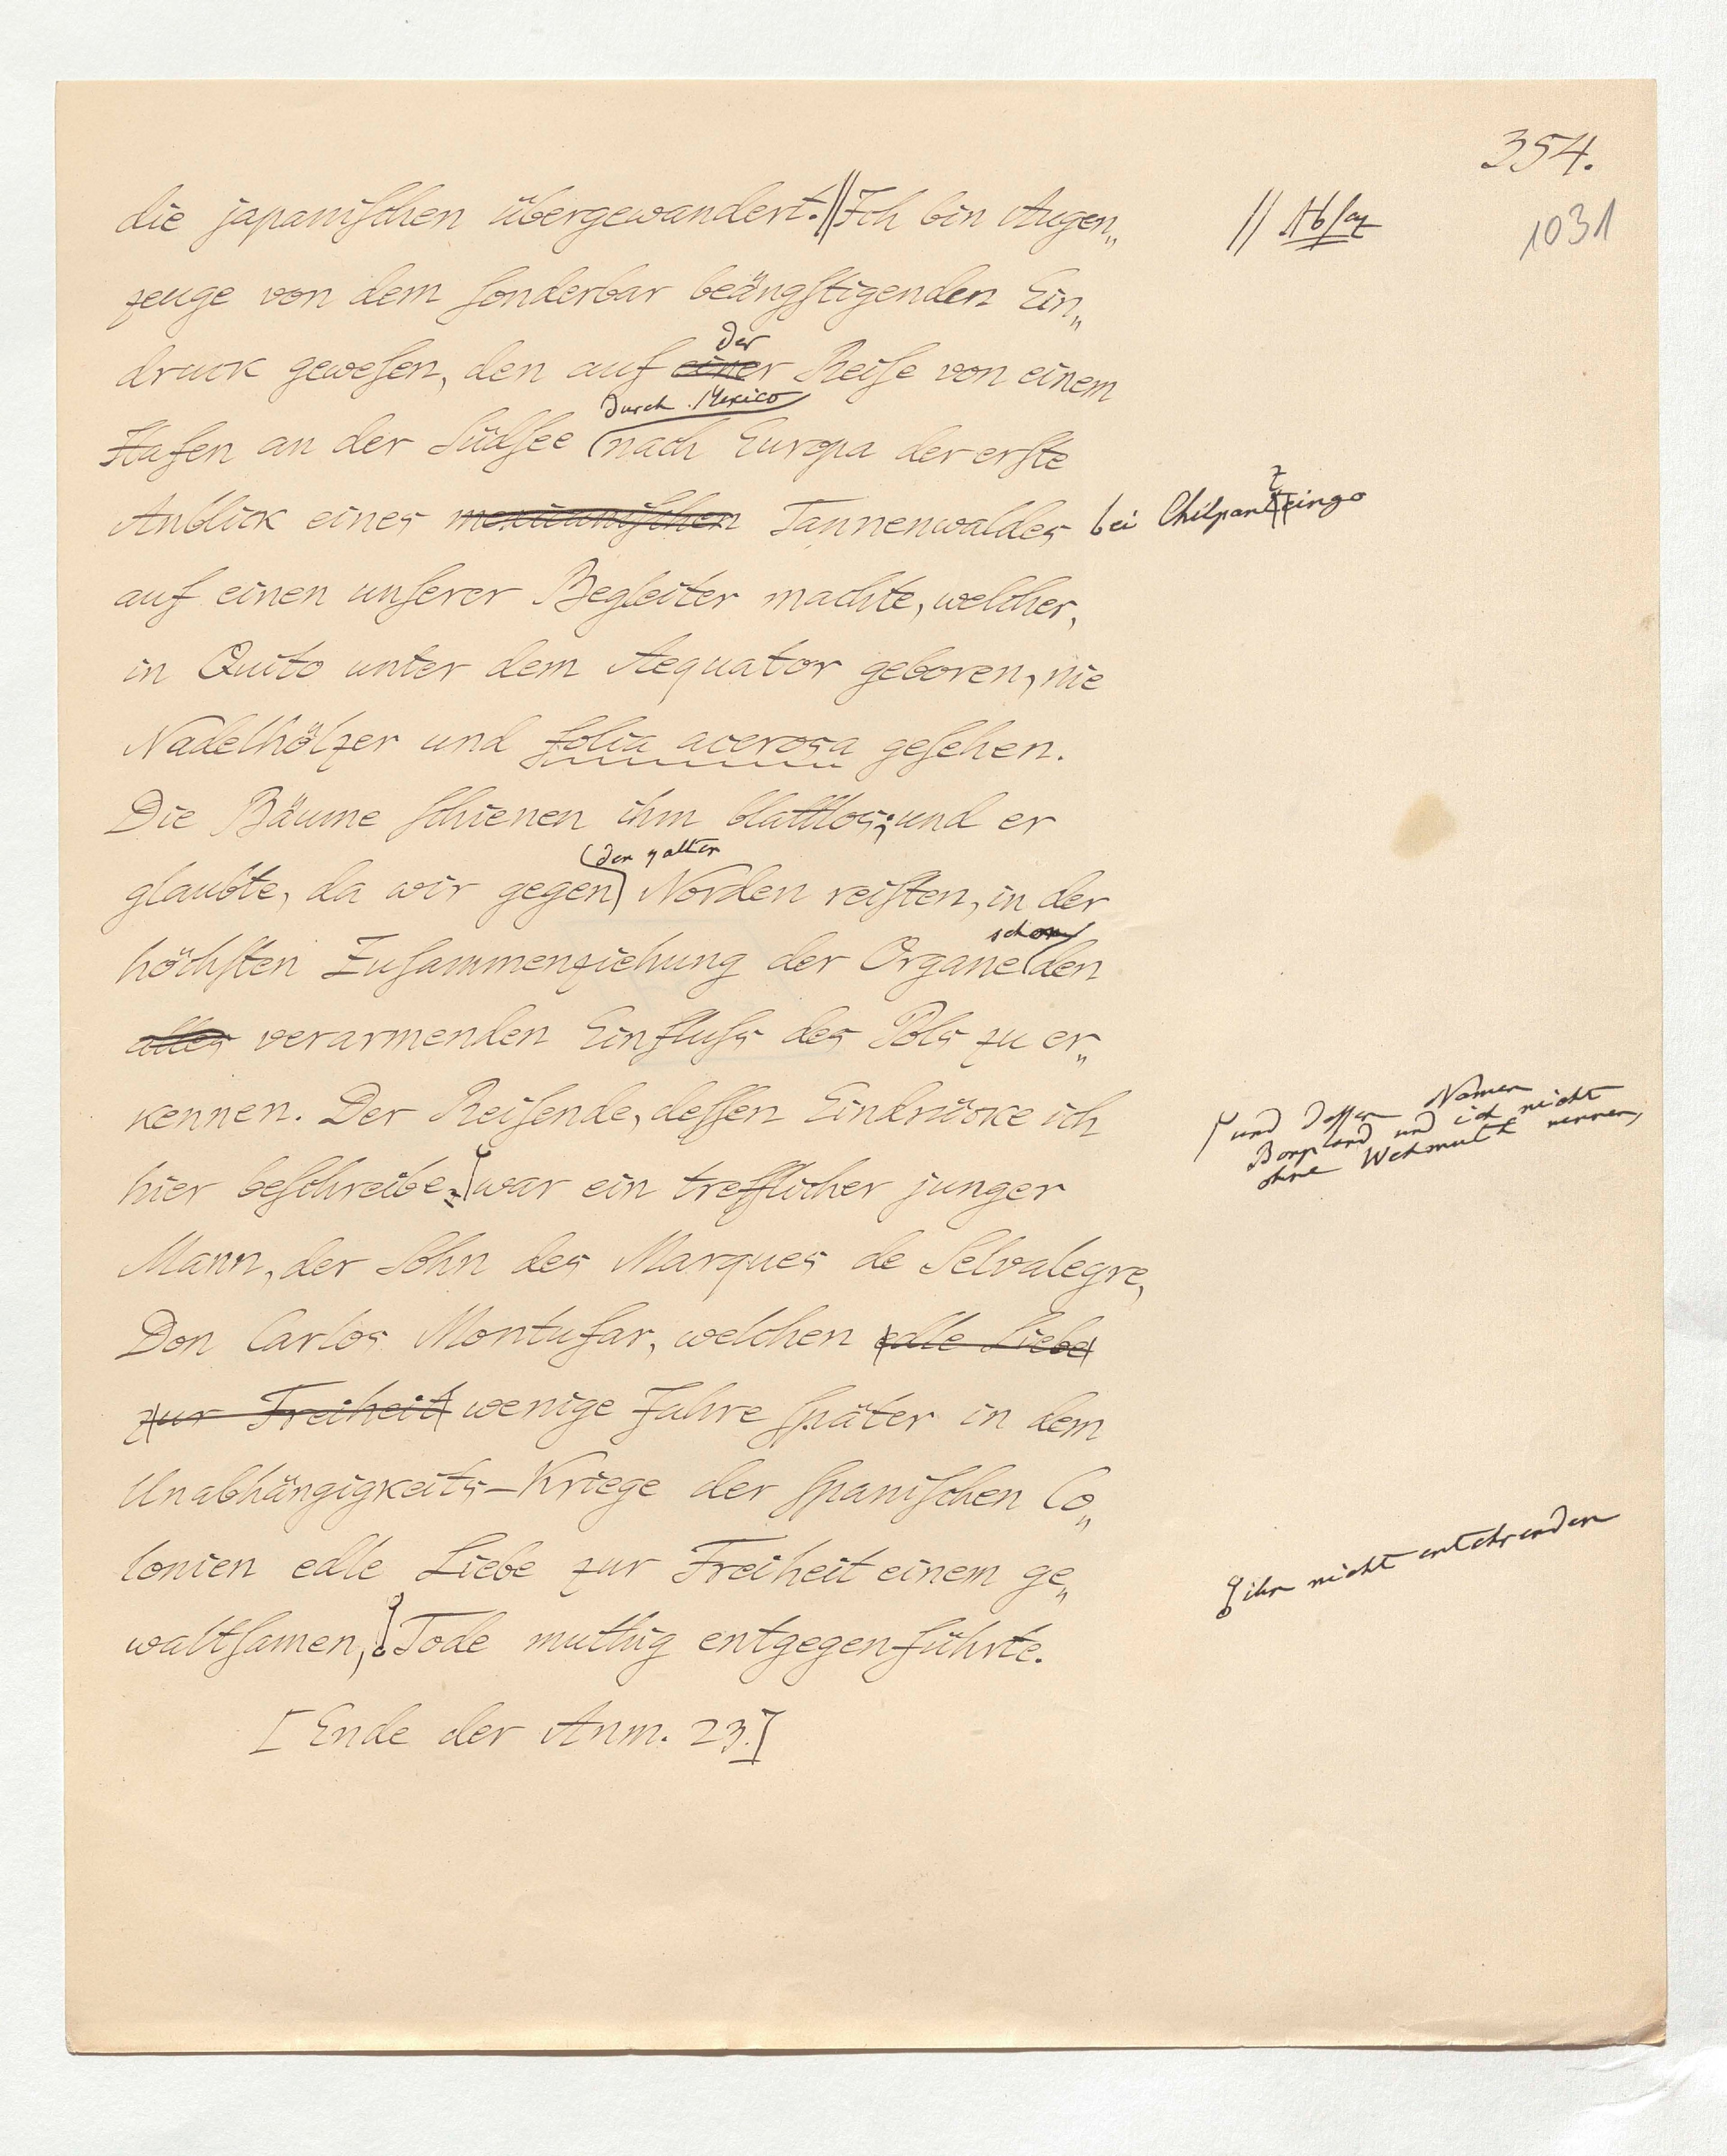 354.
1031
die japaniſchen übergewandert.// Ich bin Augen„
// Abſaz
zeuge von dem ſonderbar beängſtigenden Ein„
der
druck geweſen, den auf einer Reiſe von einem
durch Mexico
Hafen an der Südſee nach Europa der erſte
Anblick eines mexicaniſchen Tannenwaldes bei Chilpantzingo
auf einen unſerer Begleiter machte, welcher,
in Quito unter dem Aequator geboren, nie
Nadelhölzer und folia acerosa geſehen.
Die Bäume ſchienen ihm blattlos; und er
der kalten
glaubte, da wir gegen Norden reiſten, in der
schon
höchſten Zuſammenziehung der Organe den
alles verarmenden Einfluſs des Pols zu er„
kennen. Der Reiſende, deſſen Eindrücke ich
und deſſen Namen
Bonpland und ich nicht
ohne Wehmuth nennen,
hier beſchreibe, war ein trefflicher junger
Mann, der Sohn des Marques de Selvalegre,
Don Carlos Montufar, welchen edle Liebe
zur Freiheit wenige Jahre ſpäter in dem
Unabhängigkeits-Kriege der ſpaniſchen Co„
lonien edle Liebe zur Freiheit einem ge„
ihn nicht entehrenden
waltſamen, Tode muthig entgegenführte.
[Ende der Anm. 23.]